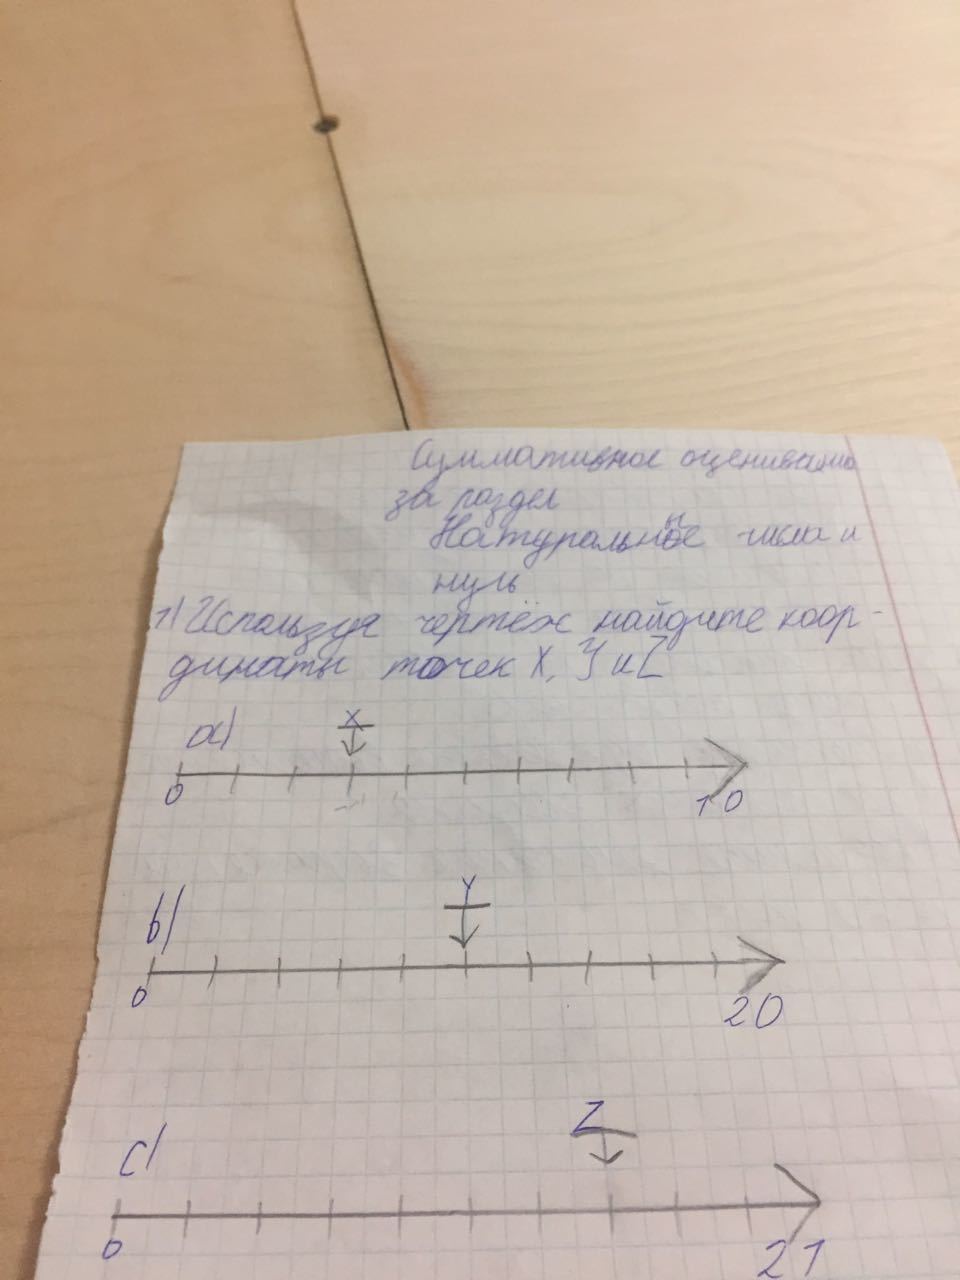 Суммативное оценивание
за раздел
Натуральные числа и
нуль
1) Используя чертёж найдите коор-
динаты точек X, Y и Z
a)
X
0 10
b)
Y
0 20
c)
Z
0 21